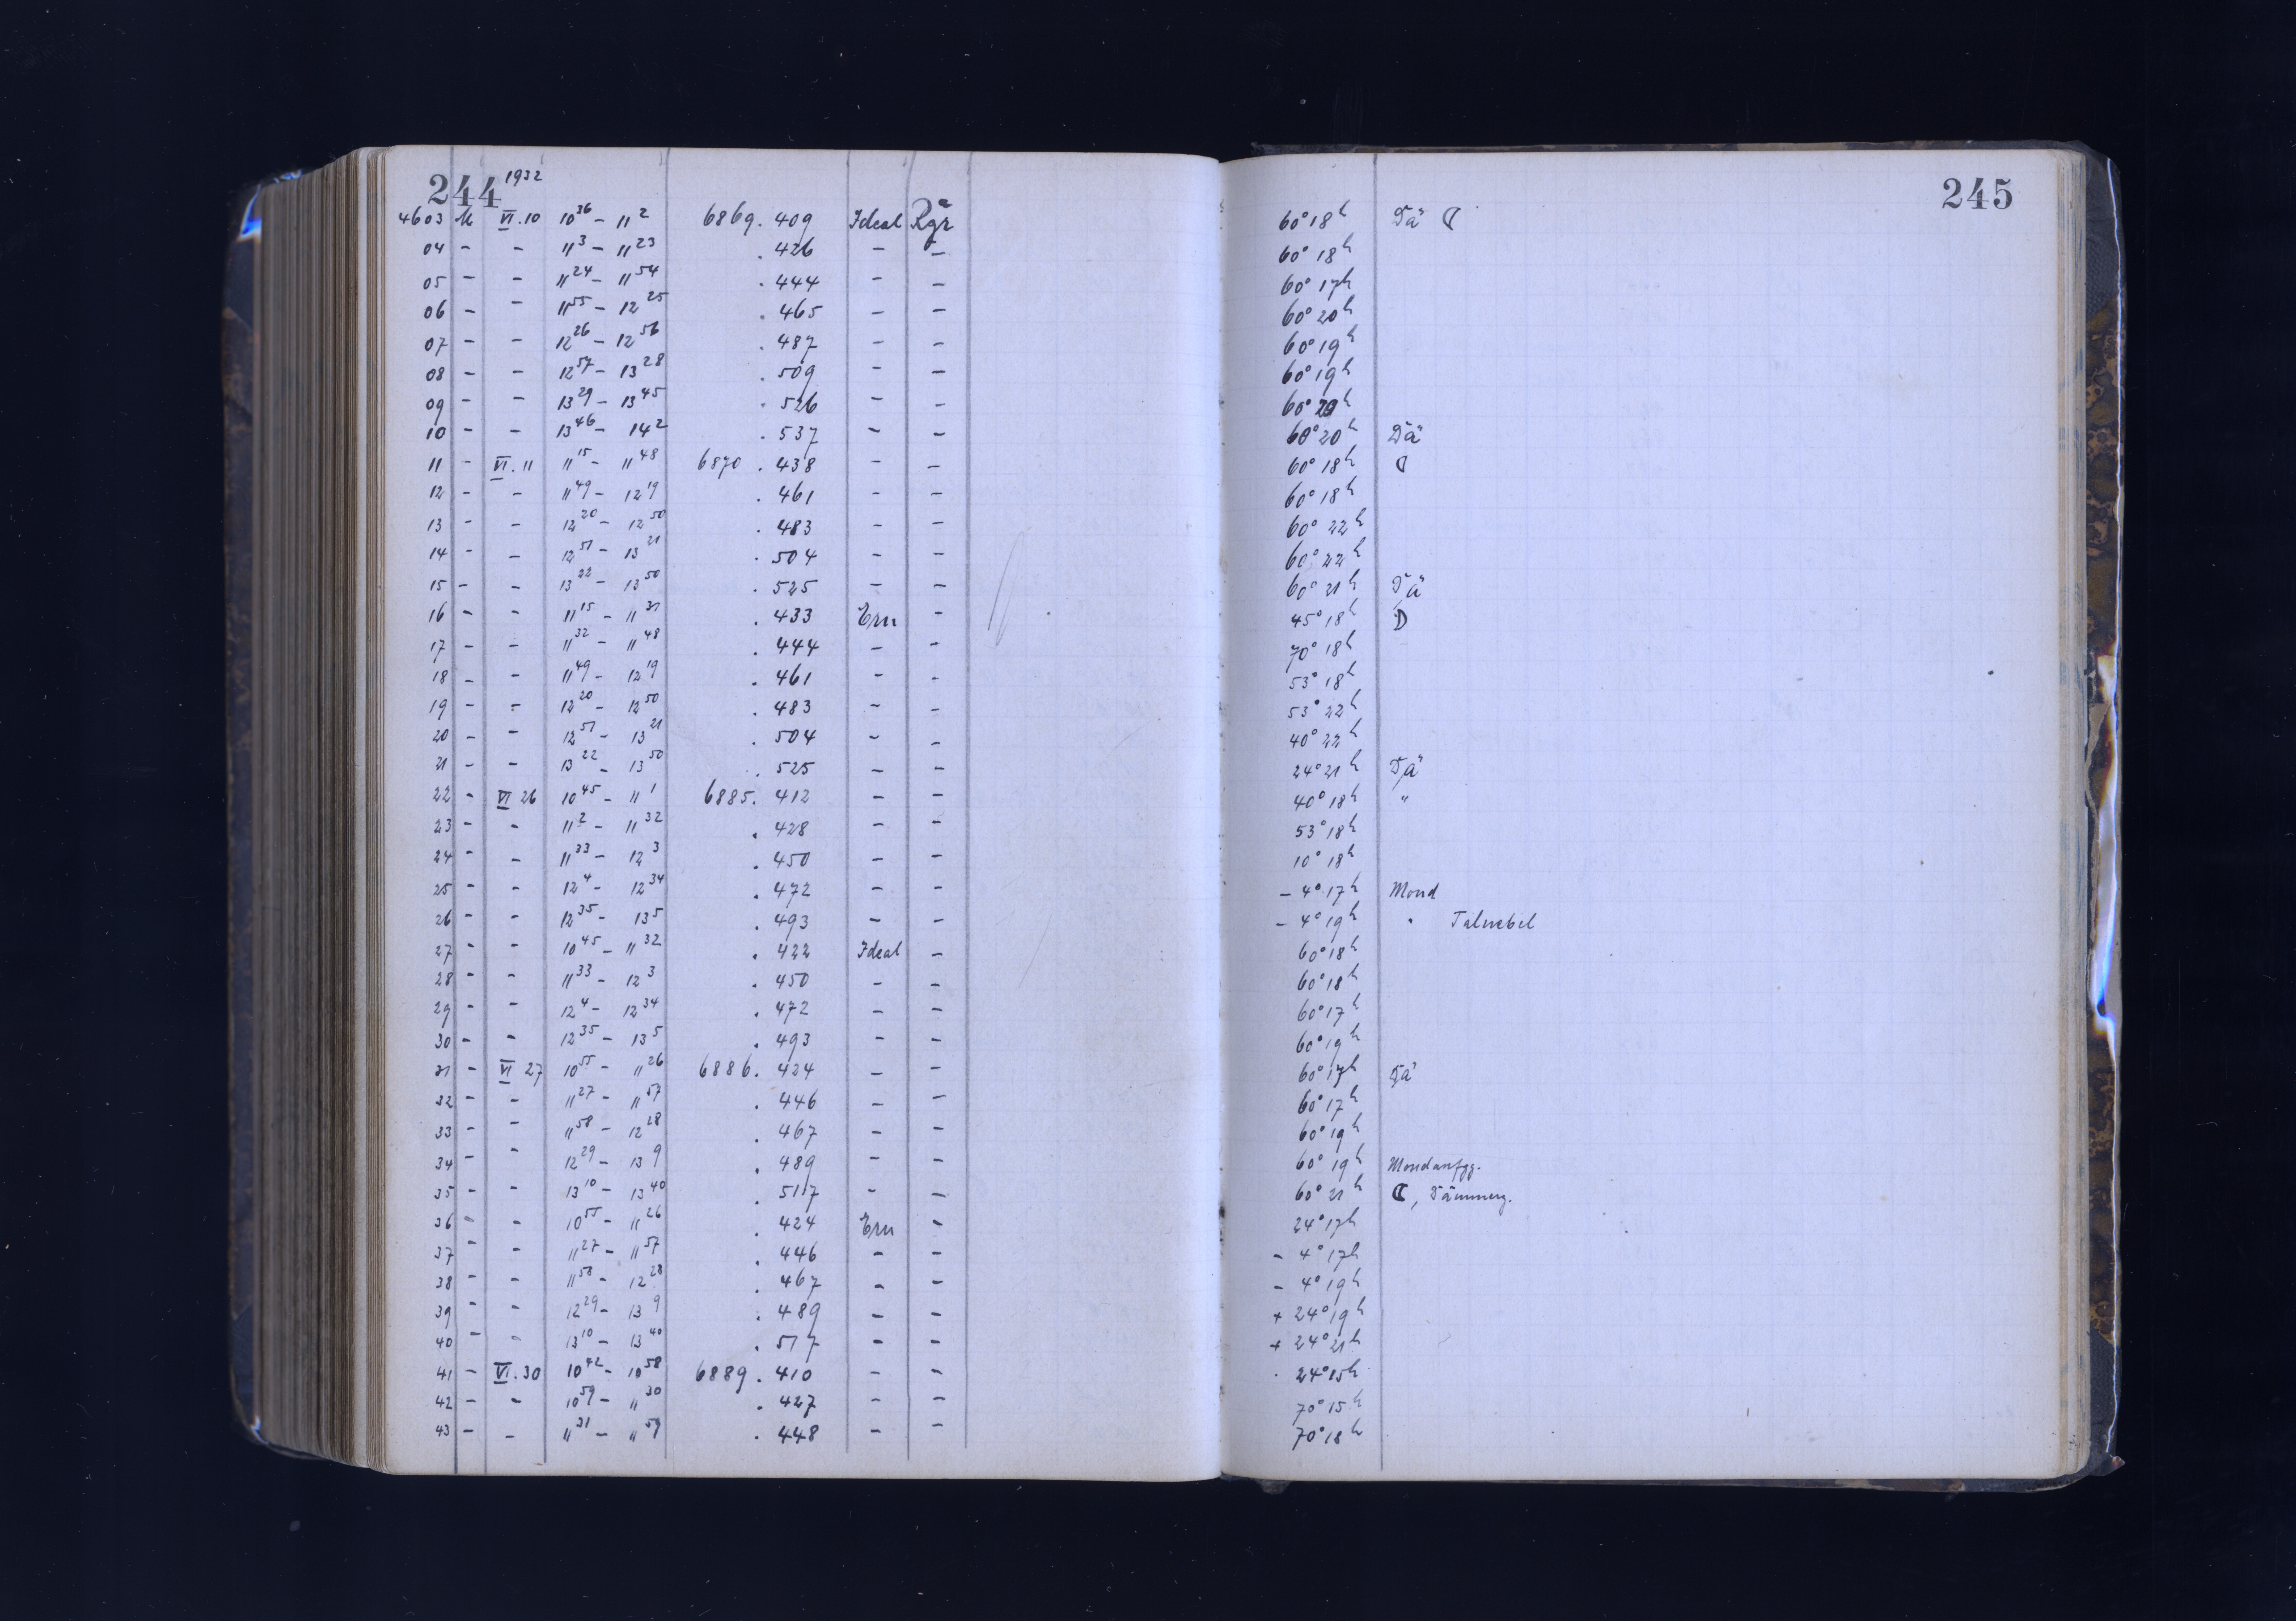 244 1932
245
4603 M VI.10 10 36 – 11 2 6869.409 Ideal Rgr 60° 18h Dä ☾
04 – – 11 3 – 11 23 .426 – – 60° 18h
05 – – 11 24 – 11 54 .444 – – 60° 17h
06 – – 11 55 – 12 25 .465 – – 60° 20h
07 – – 12 26 – 12 56 .487 – – 60° 19h
08 – – 12 57 – 13 28 .509 – – 60° 19h
09 – – 13 29 – 13 45 .526 – – 60° 20h
10 – – 13 46 – 14 2 .537 – – 60° 20h Dä
11 – VI.11 11 15 – 11 48 6870.438 – – 60° 18h ☾
12 – – 11 49 – 12 19 .461 – – 60° 18h
13 – – 12 20 – 12 50 .483 – – 60° 22h
14 – – 12 51 – 13 21 .504 – – 60° 22h
15 – – 13 22 – 13 50 .525 – – 60° 21h Dä
16 – – 11 15 – 11 31 .433 Ern – 45° 18h ☽
17 – – 11 32 – 11 48 .444 – – 70° 18h
18 – – 11 49 – 12 19 .461 – – 53° 18h
19 – – 12 20 – 12 50 .483 – – 53° 22h
20 – – 12 51 – 13 21 .504 – – 40° 22h
21 – – 13 22 – 13 50 .525 – – 24° 21h Dä
22 – VI 26 10 45 – 11 1 6885.412 – – 40° 18h "
23 – – 11 2 – 11 32 .428 – – 53° 18h
24 – – 11 33 – 12 3 .450 – – 10° 18h
25 – – 12 4 – 12 34 .472 – – – 4° 17h Mond
26 – – 12 35 – 13 5 .493 – – – 4° 19h " Talnebel
27 – – 10 45 – 11 32 .422 Ideal – 60° 18h
28 – – 11 33 – 12 3 .450 – – 60° 18h
29 – – 12 4 – 12 34 .472 – – 60° 17h
30 – – 12 35 – 13 5 .493 – – 60° 19h
31 – VI 27 10 55 – 11 26 6886.424 – – 60° 17h Dä
32 – – 11 27 – 11 57 .446 – – 60° 17h
33 – – 11 58 – 12 28 .467 – – 60° 19h
34 – – 12 29 – 13 9 .489 – – 60° 19h Mondaufgg.
35 – – 13 10 – 13 40 .517 – – 60° 21h ☾, Dämmerg.
36 – – 10 55 – 11 26 .424 Ern – 24° 17h
37 – – 11 27 – 11 57 .446 – – – 4° 17h
38 – – 11 58 – 12 28 .467 – – – 4° 19h
39 – – 12 29 – 13 9 .489 – – + 24° 19h
40 – – 13 10 – 13 40 .517 – – + 24° 21h
41 – VI.30 10 42 – 10 58 6889.410 – – 24° 15h
42 – – 10 59 – 11 30 .427 – – 70° 15h
43 – – 11 31 – 11 59 .448 – – 70° 18h